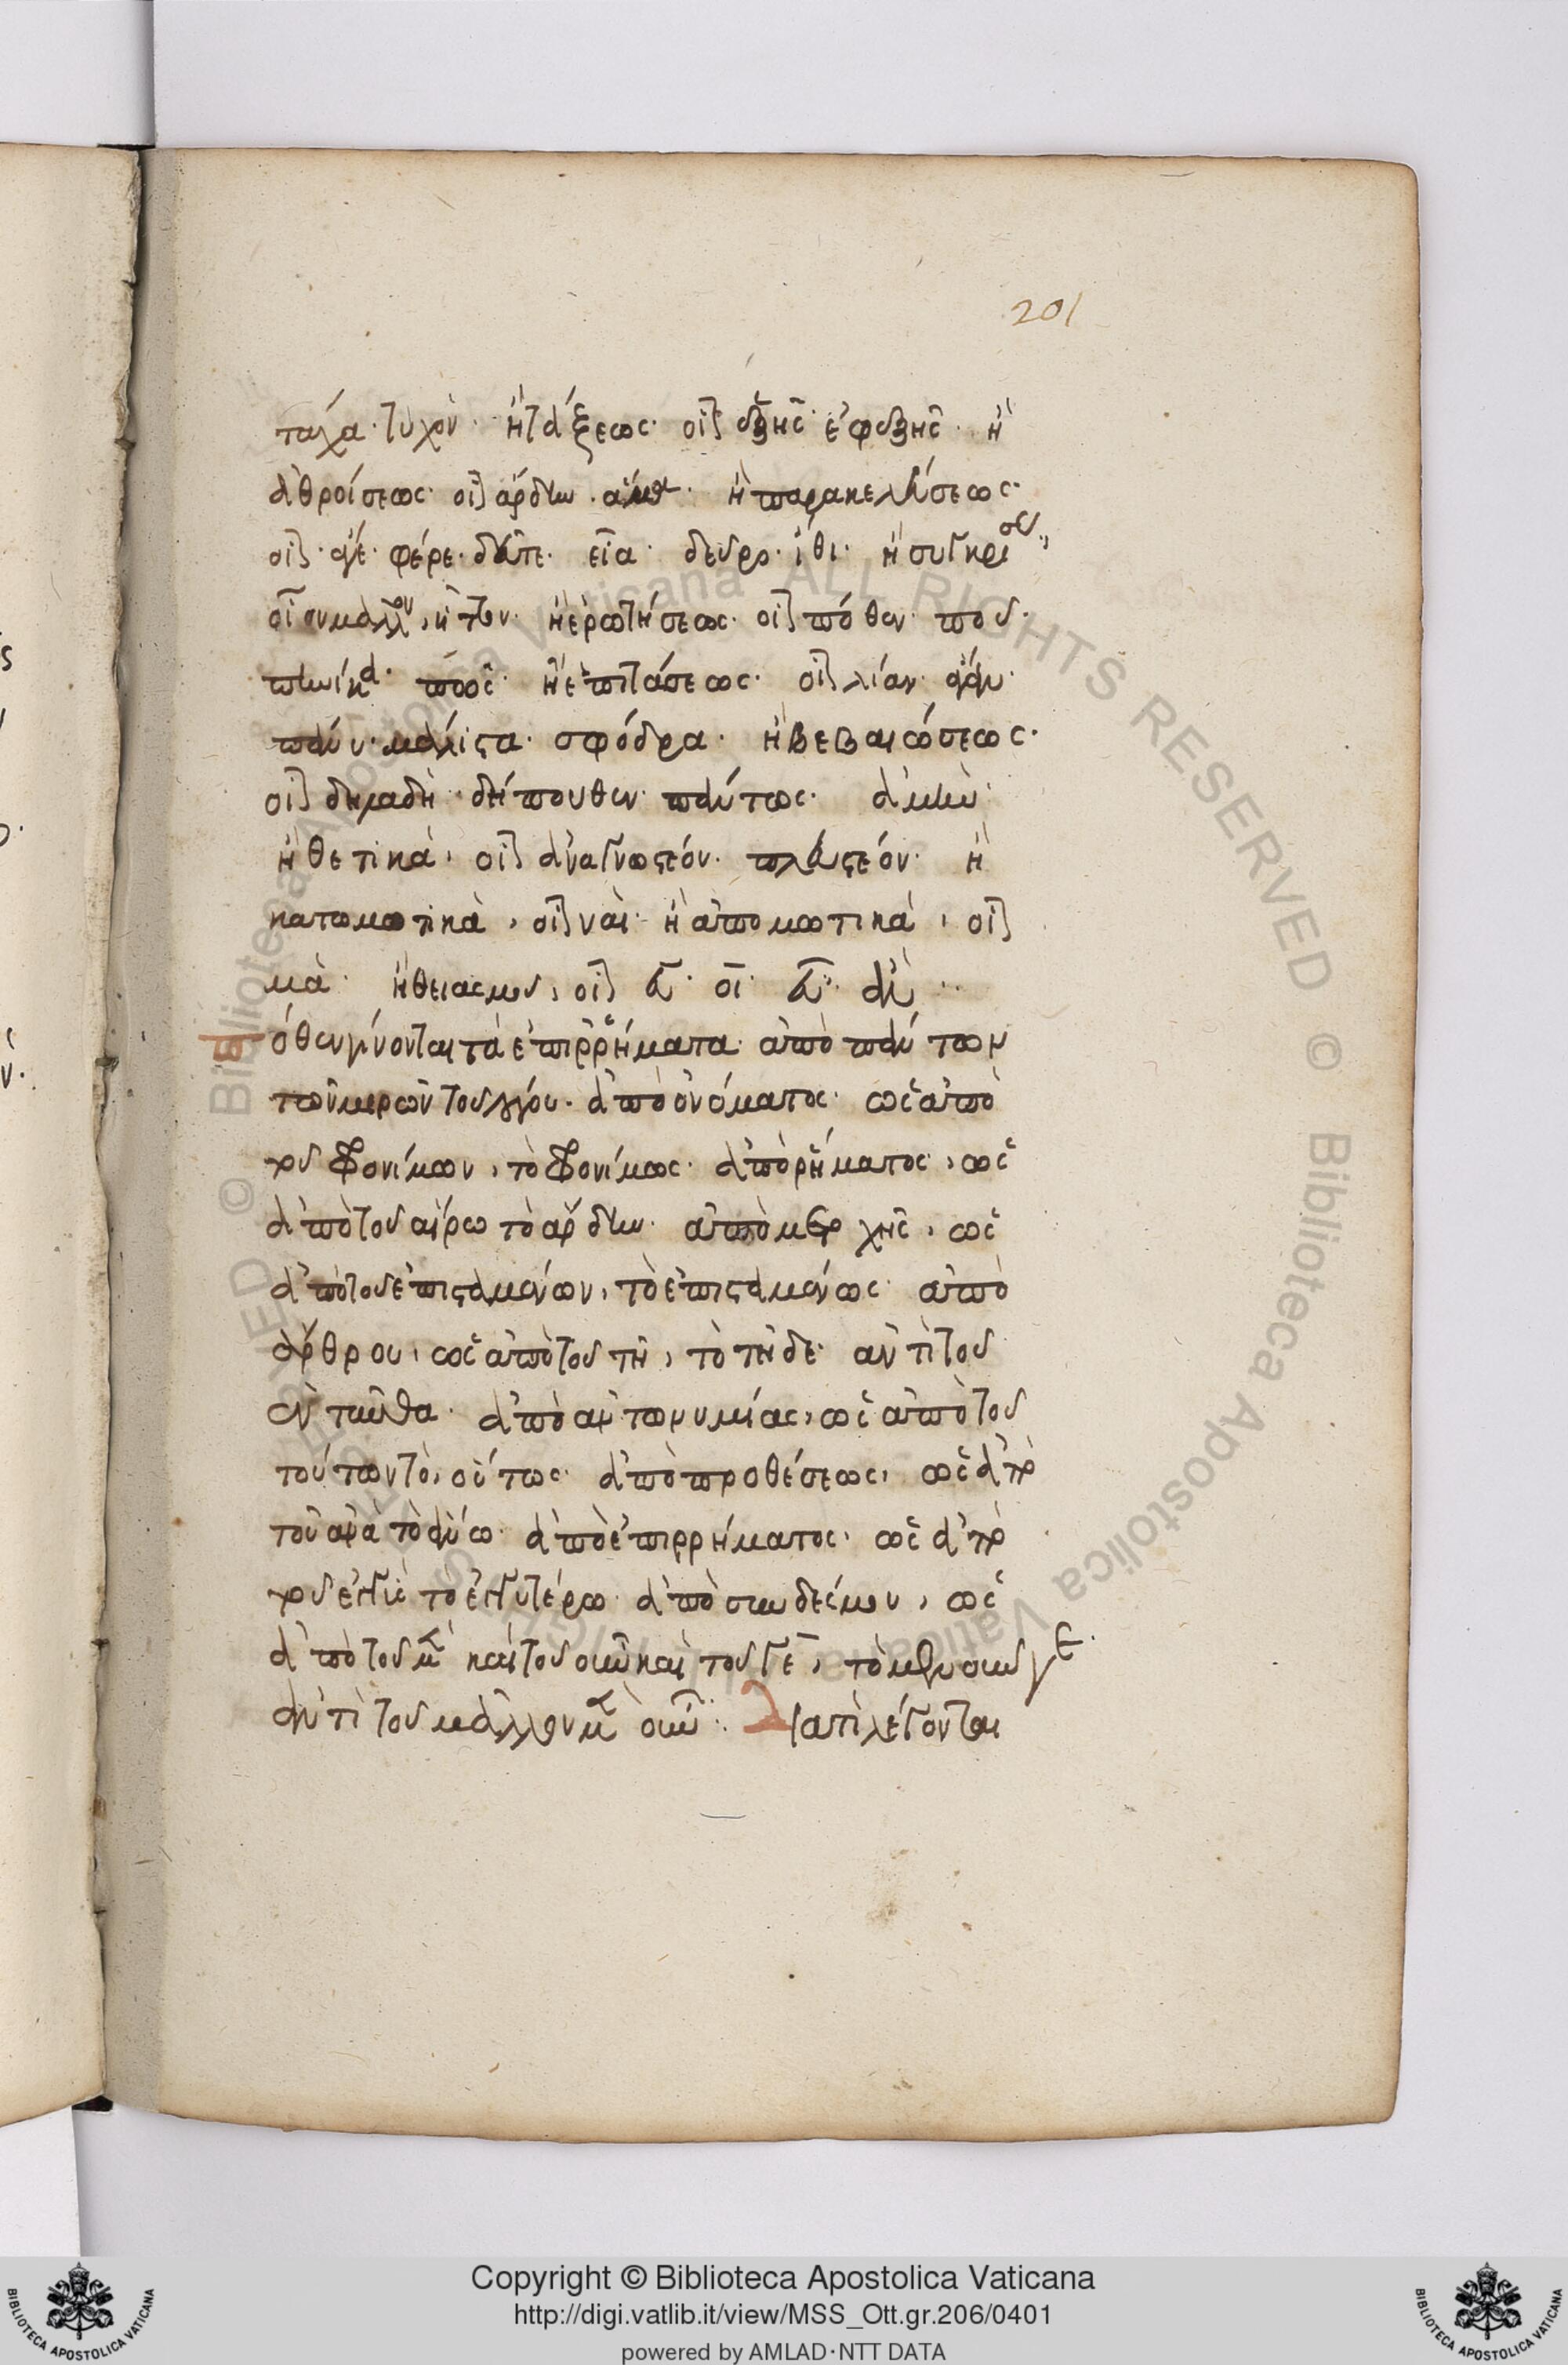 201
τάχα· τυχὸν· ἢ τάξεως· οἷον ἑξῆς· ἐφεξῆς· ἢ
ἀθροίσεως· οἷον ἄρδην· ἅμα· ἢ παρακελεύσεως·
οἷον· ἄγε· φέρε· δεῦτε· εἶα· δεῦρο· ἴθι· ἢ συγκρίσεως,
οἷον μᾶλλον, ἧττον· ἢ ἐρωτήσεως· οἷον πόθεν· ποῦ·
πηνίκα· πῶς· ἢ ἐπιτάσεως· οἷον λίαν· ἄγαν·
πάνυ· μάλιστα· σφόδρα· ἢ βεβαιώσεως·
οἷον δηλαδὴ· δήπουθεν· πάντως· ἀμὴν·
ἢ θετικὰ, οἷον ἀναγνωστέον· πλευστέον· ἢ
κατωμοτικὰ, οἷον ναὶ· ἢ ἀπωμοτικὰ, οἷον
μὰ· ἢ θειασμοῦ, οἷον
πόθεν γίνονται τὰ ἐπιρρήματα· ἀπὸ πάντων
τῶν μερῶν τοῦ λόγου· ἀπὸ ὀνόματος· ὡς ἀπὸ
τοῦ φρονίμων, τὸ φρονίμως· ἀπὸ ῥήματος, ὡς
ἀπὸ τοῦ αἴρω τὸ ἄρδην· ἀπὸ μετοχῆς, ὡς
ἀπὸ τοῦ ἐπισταμένων, τὸ ἐπισταμένως· ἀπὸ
ἄρθρου, ὡς ἀπὸ τοῦ τῇ, τὸ τῇδε· ἀντὶ τοῦ
ἐνταῦθα· ἀπὸ ἀντωνυμίας, ὡς ἀπὸ τοῦ
τούτων τὸ, οὕτως· ἀπὸ προθέσεως, ὡς ἀπὸ
τοῦ ἀνὰ τὸ ἄνω· ἀπὸ ἐπιρρήματος· ὡς ἀπὸ
τοῦ ἐγγὺς τὸ ἐγγυτέρω· ἀπὸ συνδέσμου, ὡς
ἀπὸ τοῦ μὲν καὶ τοῦ οὖν καὶ τοῦ γε, τὸ μενουνγε·
ἀντὶ τοῦ μᾶλλον μὲν οὖν: Διατὶ λέγονται
Copyright © Biblioteca Apostolica Vaticana
http://digi.vatlib.it/view/MSS_Ott.gr.206/0401
powered by AMLAD·NTT DATA